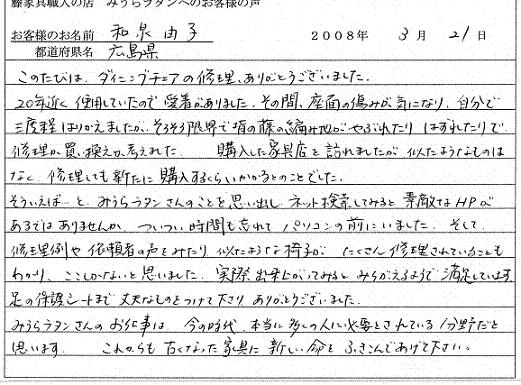 藤家具職人の店　みうらラタンへのお客様の声
お客様のお名前　和泉由子　2008年　3月　21日
都道府県名　広島県
このたびは、ダイニングチェアの修理、ありがとうございました。
20年近く使用していたので愛着がありました。その間、座面の傷みが気になり、自分で
三度程はりかえましたが、そろそろ限界で椅の藤の編み地がやぶれたりはずれたりで
修理か買い換えか考えました。　購入した家具店を訪れましたが似たようなものは
なく、修理しても新たに購入するくらいかかるとのことでした。
そういえば…と、みうらラタンさんのことを思い出し、ネット検索してみると素敵なHPが
あるではありませんか。ついつい時間も忘れてパソコンの前にいました。そして
修理例や依頼者の声をみたり、似たような椅子がたくさん修理されていることも
わかり、ここしかないと思いました。実際出来上がってみるとみちがえるようで満足しています。
足の保護シートまで丈夫なものをつけて下さりありがとうございました。
みうらラタンさんのお仕事は、今の時代、本当に多くの人に必要とされている分野だと
思います。　これからも古くなった家具に新しい命をふきこんであげて下さい。